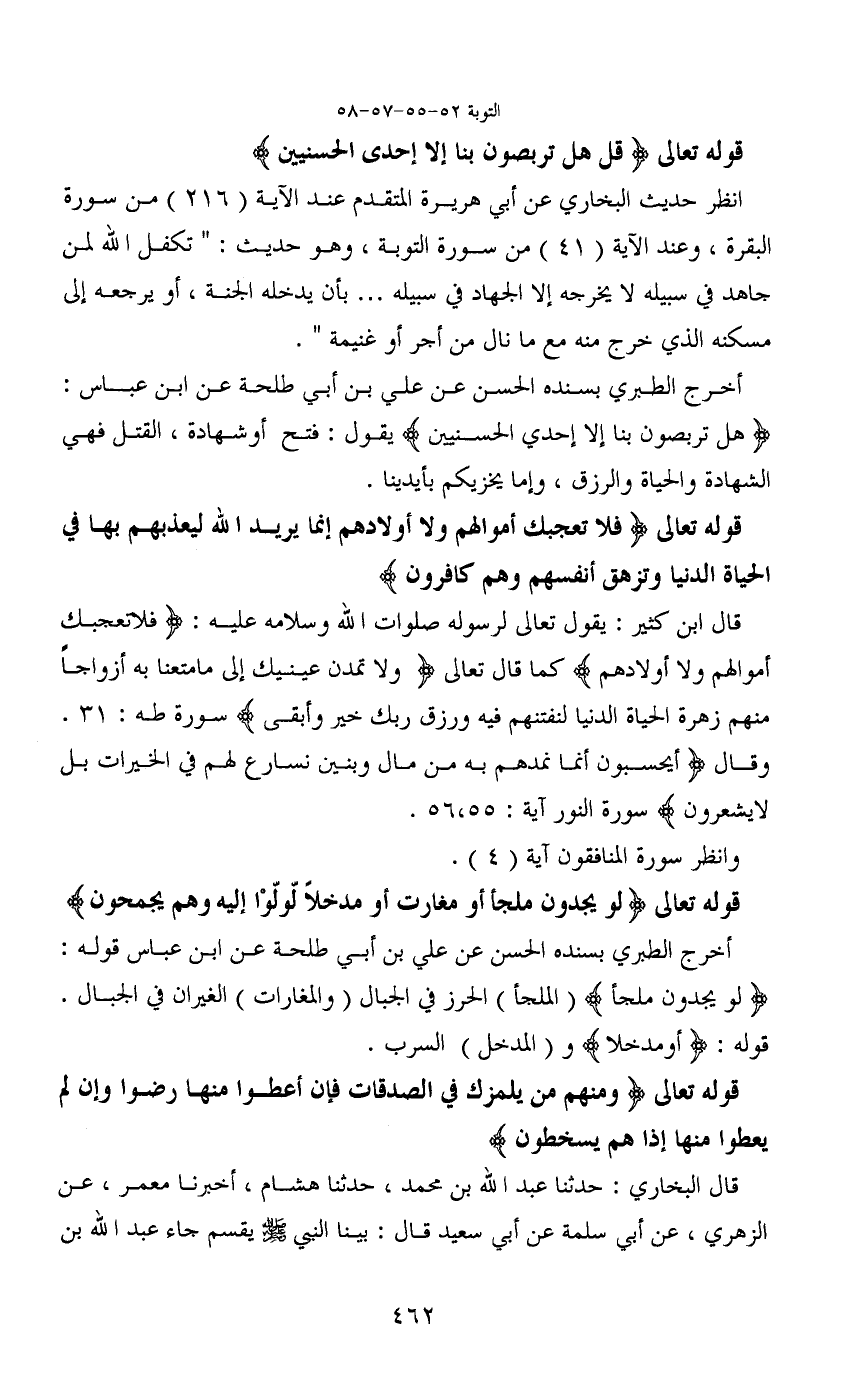 التوبة ٥٢-٥٥-٥٧-٥٨
قوله تعالى ﴿ قل هل تربصون بنا إلا إحدى الحسنيين ﴾
انظر حديث البخاري عن أبي هريرة المتقدم عند الآية ( ٢١٦ ) من سورة
البقرة ، وعند الآية ( ٤١ ) من سورة التوبة ، وهو حديث : " تكفل الله لمن
جاهد في سبيله لا يخرجه إلا الجهاد في سبيله ... بأن يدخله الجنة ، أو يرجعه إلى
مسكنه الذي خرج منه مع ما نال من أجر أو غنيمة " .
أخرج الطبري بسنده الحسن عن علي بن أبي طلحة عن ابن عباس :
﴿ هل تربصون بنا إلا إحدي الحسنيين ﴾ يقول : فتح أوشهادة ، القتل فهي
الشهادة والحياة والرزق ، وإما يخزيكم بأيدينا .
قوله تعالى ﴿ فلا تعجبك أموالهم ولا أولادهم إنما يريد الله ليعذبهم بها في
الحياة الدنيا وتزهق أنفسهم وهم كافرون ﴾
قال ابن كثير : يقول تعالى لرسوله صلوات الله وسلامه عليه : ﴿ فلاتعجبك
أموالهم ولا أولادهم ﴾ كما قال تعالى ﴿ ولا تمدن عينيك إلى مامتعنا به أزواجاً
منهم زهرة الحياة الدنيا لنفتنهم فيه ورزق ربك خير وأبقى ﴾ سورة طه : ٣١ .
وقال ﴿ أيحسبون أنما نمدهم به من مال وبنين نسارع لهم في الخيرات بل
لايشعرون ﴾ سورة النور آية : ٥٦،٥٥ .
وانظر سورة المنافقون آية ( ٤ ) .
قوله تعالى ﴿ لو يجدون ملجأ أو مغارت أو مدخلاً لّولّوْا إليه وهم يجمحون ﴾
أخرج الطبري بسنده الحسن عن علي بن أبي طلحة عن ابن عباس قوله :
﴿ لو يجدون ملجأ ﴾ ( الملجأ ) الحرز في الجبال ( والمغارات ) الغيران في الجبال .
قوله : ﴿ أومدخلا ﴾ و ( المدخل ) السرب .
قوله تعالى ﴿ ومنهم من يلمزك في الصدقات فإن أعطوا منها رضوا وإن لم
يعطوا منها إذا هم يسخطون ﴾
قال البخاري : حدثنا عبد الله بن محمد ، حدثنا هشام ، أخبرنا معمر ، عن
الزهري ، عن أبي سلمة عن أبي سعيد قال : بينا النبي ﷺ يقسم جاء عبد الله بن
٤٦٢